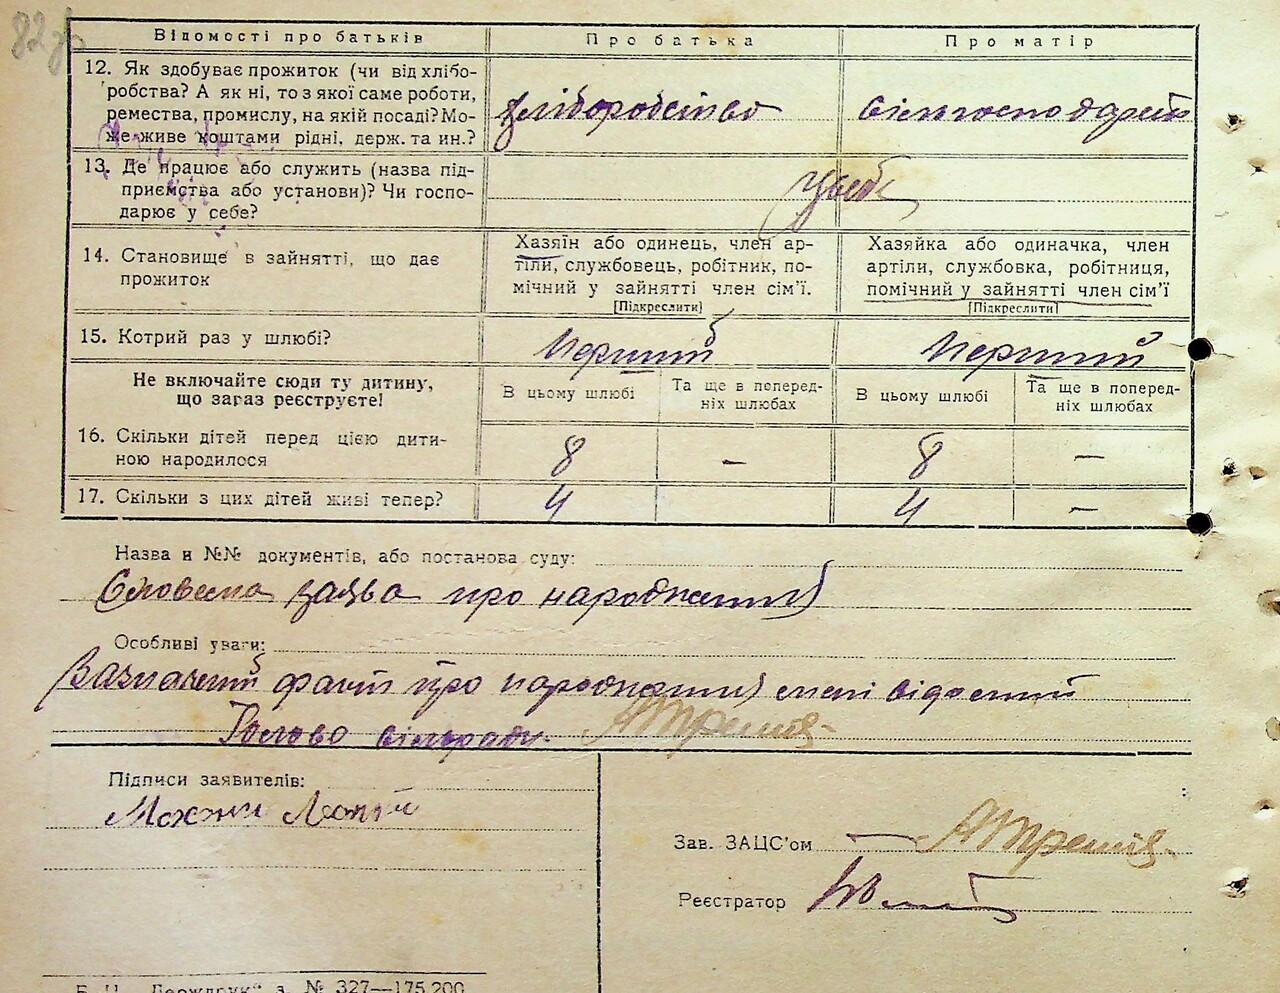 82зв
Відомості про батьків
Про батька
Про матір
12. Як здобуває прожиток (чи від хлібо-
робства? А як ні, то з якої саме роботи,
ремества, промислу, на якій посаді? Мо-
же живе коштами рідні, держ. та ин.?
хліборобство
сільгосподарств
13. Де працює або служить (назва під-
приємства або установи)? Чи госпо-
дарює у себе?
У себе
14. Становище в зайнятті, що дає
прожиток
Хазяїн або одинець, член ар-
тіли, службовець, робітник, по-
мічний у зайнятті член сім'ї.
[Підкреслити]
Хазяйка або одиначка, член
артіли, службовка, робітниця,
помічний у зайнятті член сім'ї
[Підкреслити]
15. Котрий раз у шлюбі?
Перший
Перший
Не включайте сюди ту дитину,
що зараз реєструєте!
В цьому шлюбі
Та ще в поперед-
ніх шлюбах
В цьому шлюбі
Та ще в поперед-
ніх шлюбах
16. Скільки дітей перед цією дити-
ною народилося
8
–
8
–
17. Скільки з цих дітей живі тепер?
4
4
–
Назва и №№ документів, або постанова суду:
Словесна заява про народження
Особливі уваги:
Зазначений факт про народження мені відомий
Голова сільради
Підписи заявителів:
Зав. ЗАЦС'ом
Реєстратор
Б. Ц. „Держдрук“ з. № 327—175.200